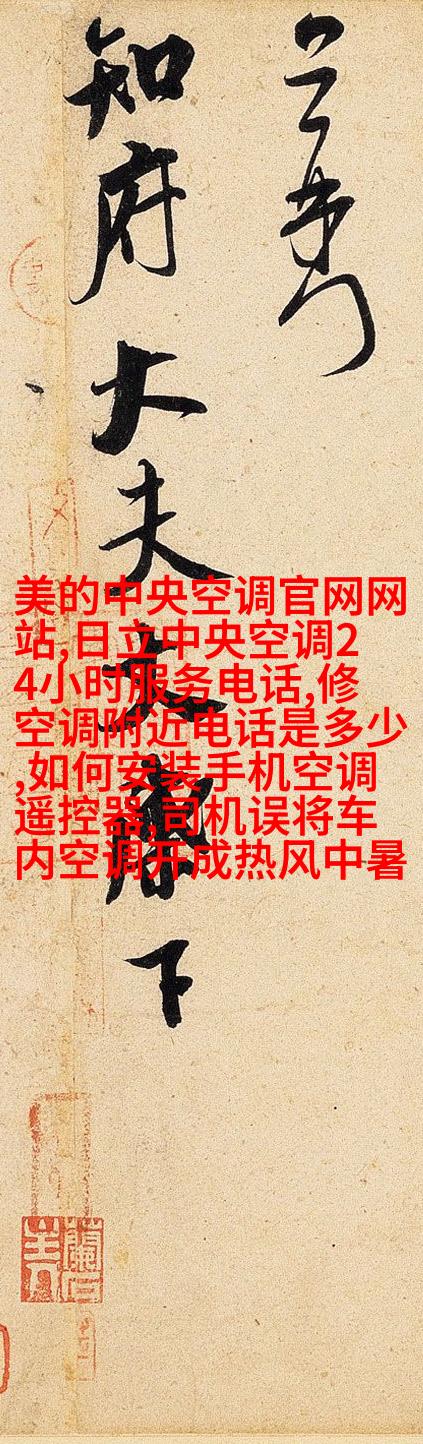 知府大夫
下
美的中央空调官网网
站,日立中央空调2
4小时服务电话,修
空调附近电话是多少
,如何安装手机空调
遥控器,司机误将车
内空调开成热风中暑